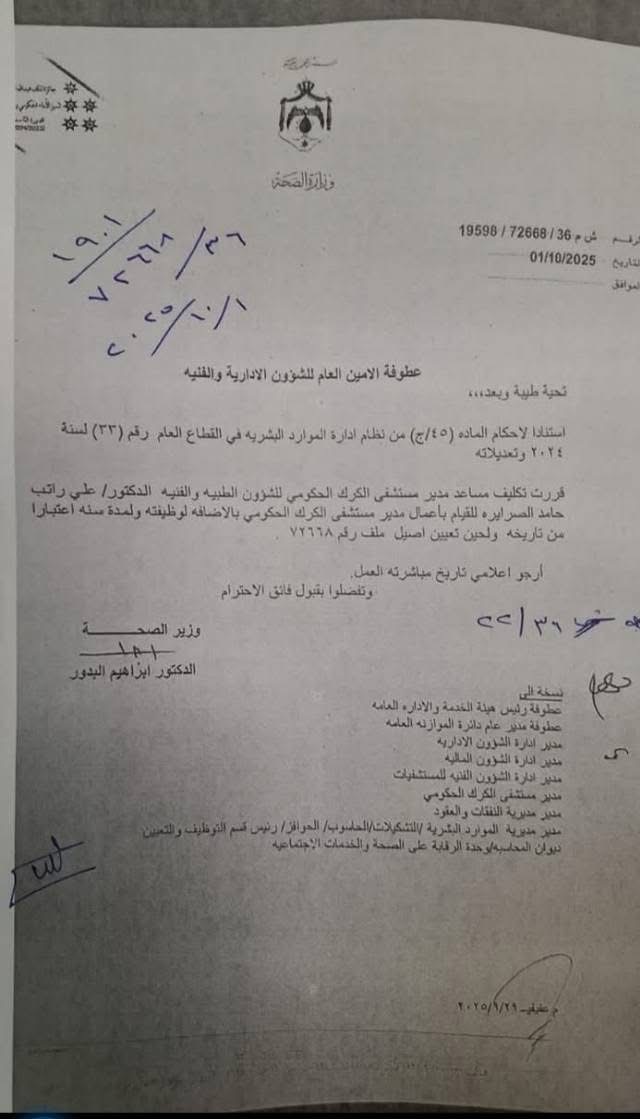 وزارة الصحة
الرقم ش م 36 / 72668 / 19598
التاريخ 01/10/2025
الموافق
٣٦ / ٧٢٦٦٨
٢٠٢٥/١٠/١
عطوفة الامين العام للشؤون الادارية والفنيه
تحية طيبة وبعد،،،
استنادا لاحكام الماده (٤٥/ج) من نظام ادارة الموارد البشريه في القطاع العام رقم (٣٣) لسنة
٢٠٢٤ وتعديلاته
قررت تكليف مساعد مدير مستشفى الكرك الحكومي للشؤون الطبيه والفنيه الدكتور/ علي راتب
حامد الصرايره للقيام بأعمال مدير مستشفى الكرك الحكومي بالاضافه لوظيفته ولمدة سنه اعتبارا
من تاريخه ولحين تعيين اصيل ملف رقم ٧٢٦٦٨ .
أرجو اعلامي تاريخ مباشرته العمل.
وتفضلوا بقبول فائق الاحترام
٣٦/٢٢
وزير الصحـــــــة
الدكتور ابراهيم البدور
نسخة الى
عطوفة رئيس هيئة الخدمة والاداره العامه
عطوفة مدير عام دائرة الموازنه العامه
مدير ادارة الشؤون الادارية
مدير ادارة الشؤون الماليه
مدير ادارة الشؤون الفنيه للمستشفيات
مدير مستشفى الكرك الحكومي
مدير مديرية النفقات والعقود
مدير مديرية الموارد البشرية /التشكيلات/الحاسوب/ الحوافز/ رئيس قسم التوظيف والتعيين
ديوان المحاسبه/وحدة الرقابة على الصحة والخدمات الاجتماعيه
٢٠٢٥/٩/٢٩